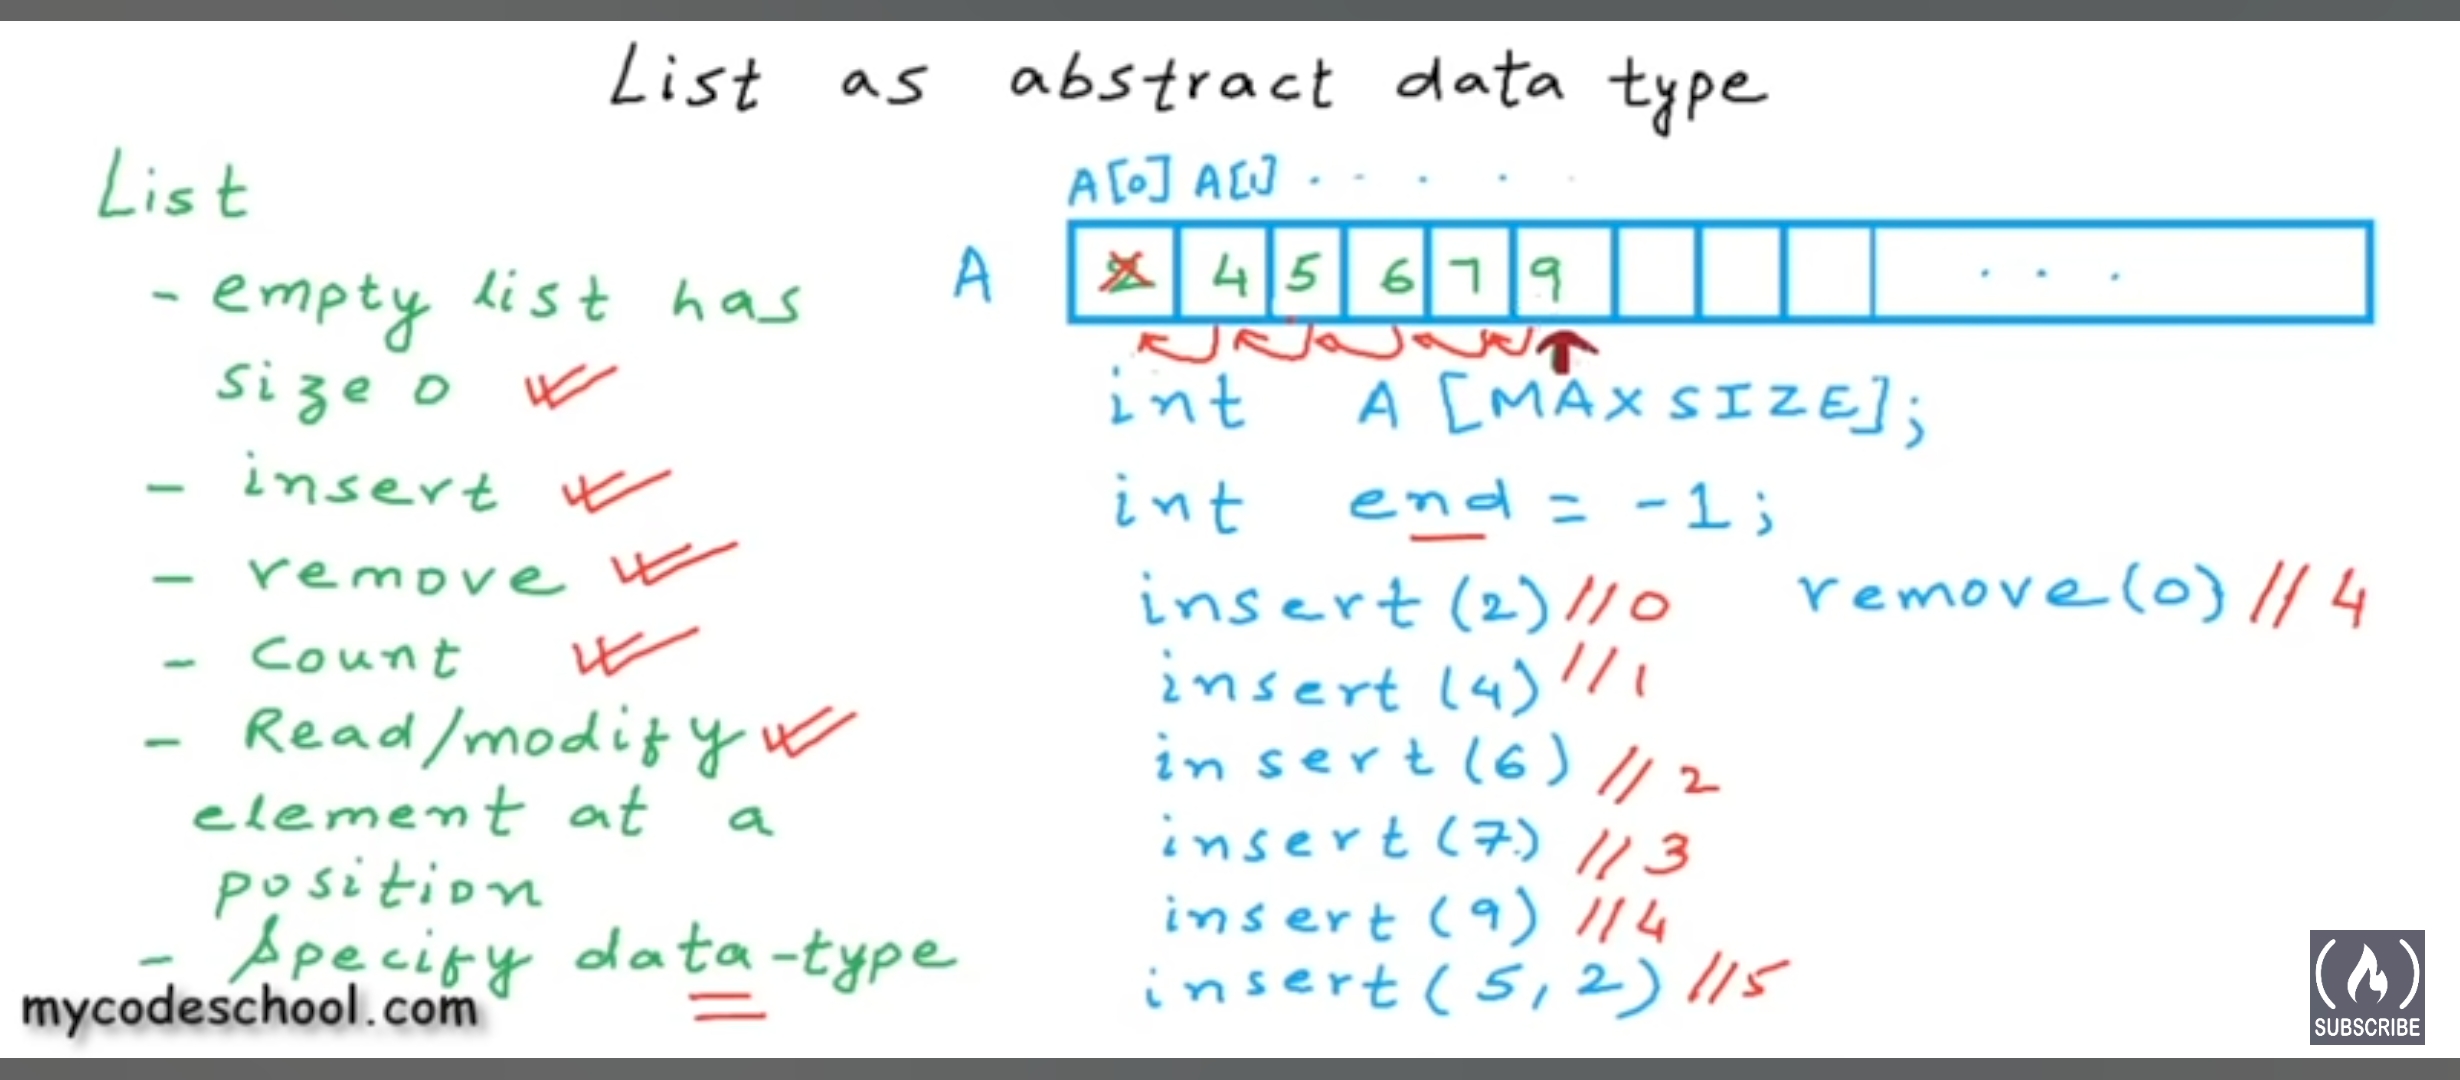 List as abstract data type
List
- empty list has
size 0
- insert
- remove
- Count
- Read/modify
element at a
position
- Specify data-type
mycodeschool.com
A[0] A[1] . . . . .
A
2 4 5 6 7 9 . . .
int A [MAXSIZE];
int end = -1;
insert (2) //0
insert (4) //1
insert (6) //2
insert (7) //3
insert (9) //4
insert (5, 2) //5
remove(0) // 4
SUBSCRIBE